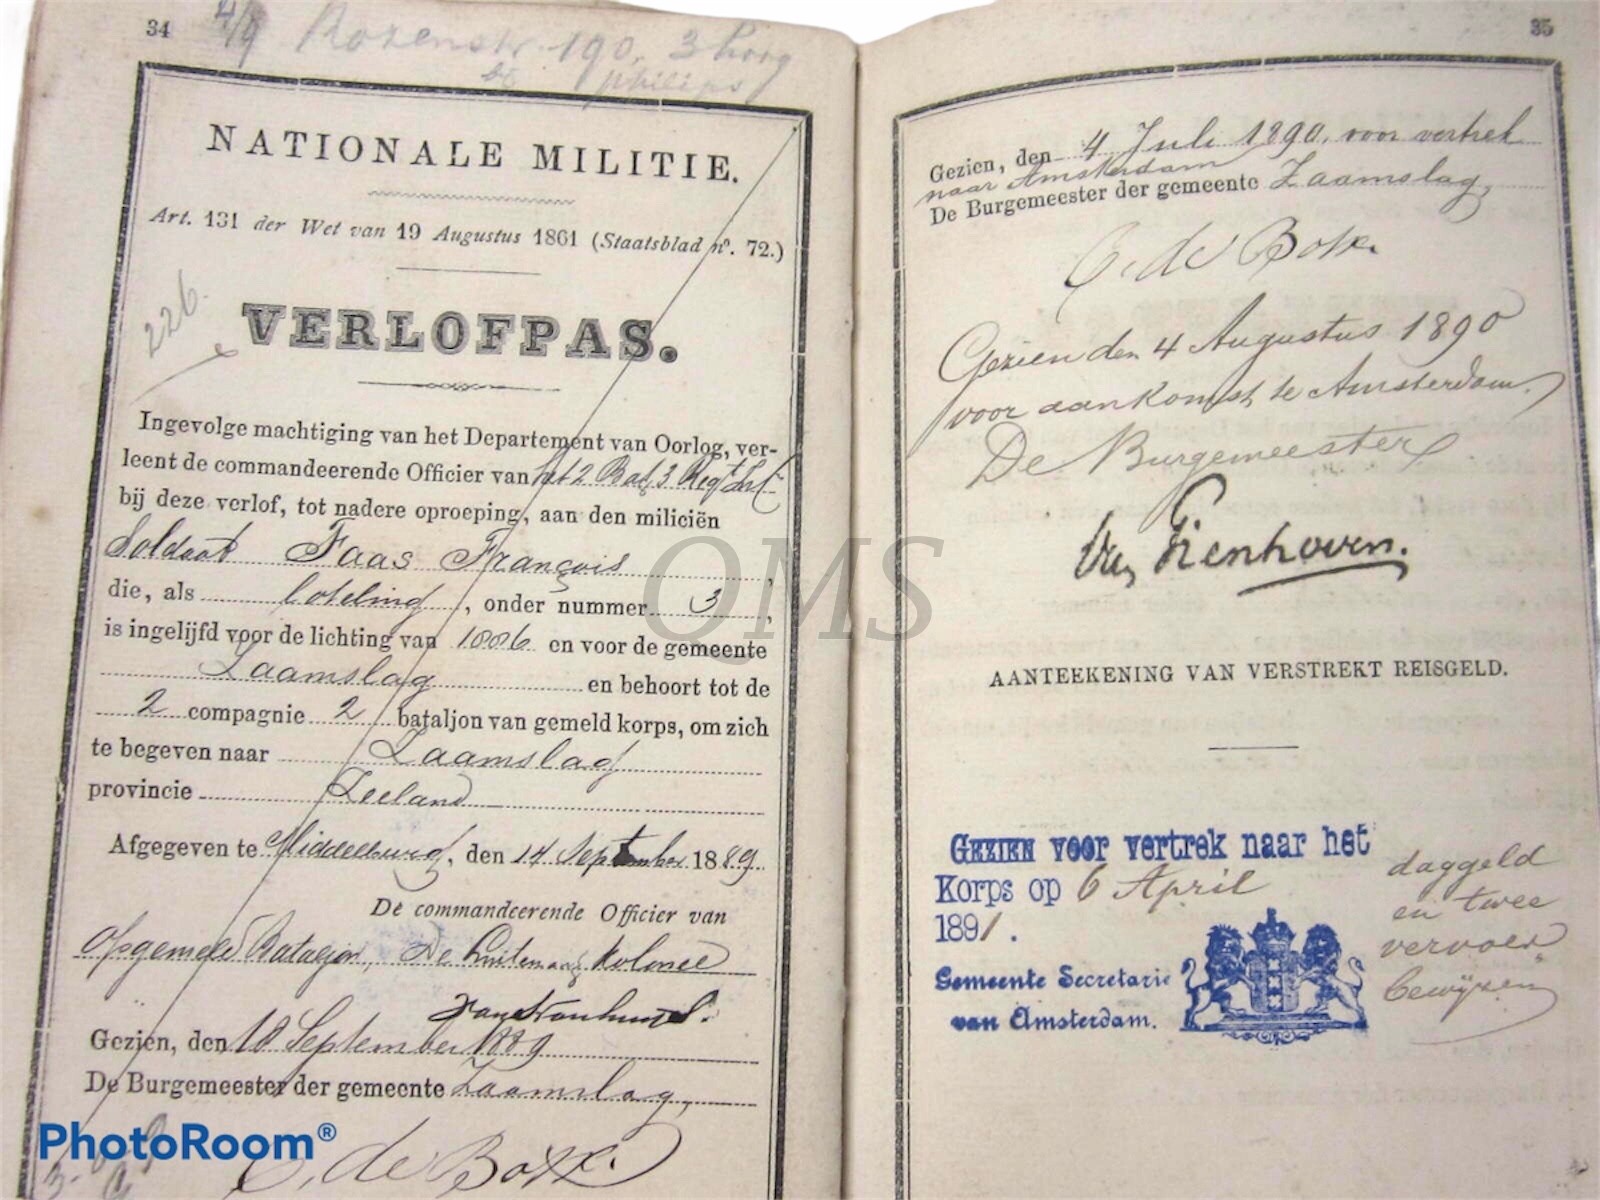 34
4/9 Rozenstr. 190. 3 hoog
philips
NATIONALE MILITIE.
Art. 131 der Wet van 19 Augustus 1861 (Staatsblad no. 72.)
226.
VERLOFPAS.
Ingevolge machtiging van het Departement van Oorlog, ver-
leent de commandeerende Officier van het 2 Bat. 3 Regt Inf.
bij deze verlof, tot nadere oproeping, aan den miliciën
Soldaat Faas François,
die, als loteling, onder nummer 3,
is ingelijfd voor de lichting van 1886 en voor de gemeente
Zaamslag en behoort tot de
2 compagnie 2 bataljon van gemeld korps, om zich
te begeven naar Zaamslag
provincie Zeeland
Afgegeven te Middelburg, den 14 September 1889.
De commandeerende Officier van
opgemeld Bataljon, De Luitenant Kolonel
Gezien, den 18 September 1889
De Burgemeester der gemeente Zaamslag,
PhotoRoom®
35
Gezien, den 4 Juli 1890, voor vertrek
naar Amsterdam
De Burgemeester der gemeente Zaamslag,
Gezien den 4 Augustus 1890
voor aankomst te Amsterdam.
De Burgemeester
Van Tienhoven.
QMS
AANTEEKENING VAN VERSTREKT REISGELD.
GEZIEN voor vertrek naar het
Korps op 6 April
1891.
Gemeente Secretarie
van Amsterdam.
daggeld
en twee
vervoer
bewijzen